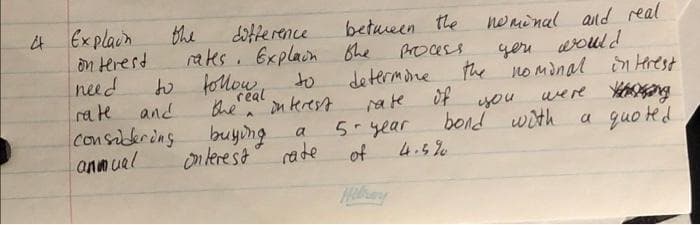 4 Explain the difference between the nominal and real
interest rates. Explain the process you would
need to follow to determine the nominal interest
rate and the real interest rate if you were
considering buying a 5-year bond with a quoted
annual interest rate of 4.5%